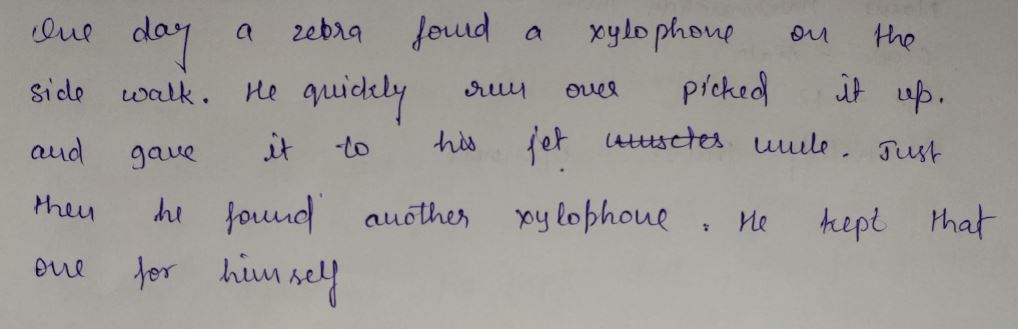 One day a zebra found a xylophone on the
side walk. He quickly run over picked it up.
and gave it to his jet uncle. Just
then he found another xylophone. He kept that
one for himself